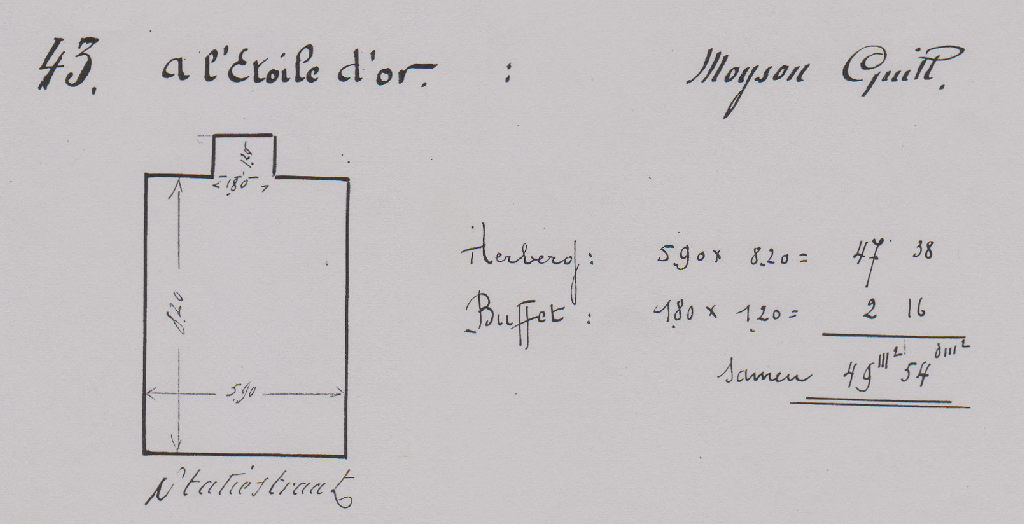 43. a l'Etoile d'or. : Moyson Guill.
1.20
1.80
8.20
5.90
Statiestraat
Herberg: 5.90 x 8.20 = 47 38
Buffet: 1.80 x 1.20 = 2 16
Samen 49 m² 54 dm²